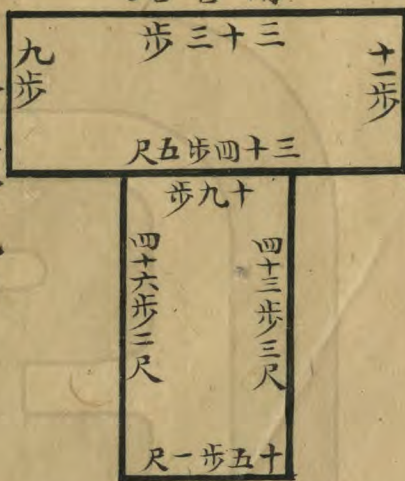 三十三步
十一步
九步
三十四步五尺
十九步
四十三步三尺
四十六步二尺
十五步一尺